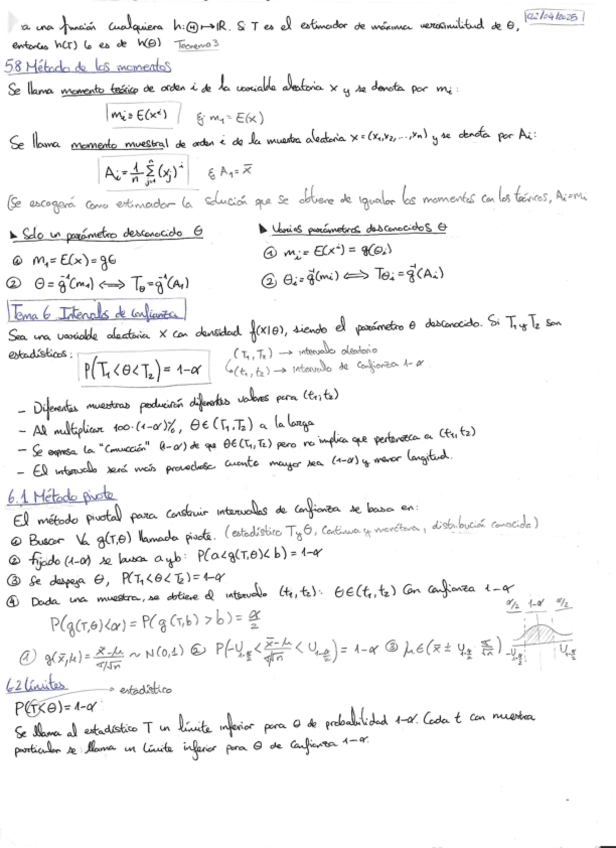 02/04/2025
a una función cualquiera h: Ⓗ ↦ ℝ. Si T es el estimador de máxima verosimilitud de θ,
entonces h(T) lo es de h(θ) Teorema 3
5.8 Método de los momentos
Se llama momento teórico de orden i de la variable aleatoria x y se denota por mi:
mi = E(xⁱ) Ej m₁ = E(x)
Se llama momento muestral de orden i de la muestra aleatoria x = (x₁, x₂, ..., xn) y se denota por Ai:
Ai = 1/n Σ (xj)ⁱ Ej A₁ = x̄
(Se escogerá como estimador la solución que se obtiene de igualar los momentos con los teóricos, Ai = mi
▶ Solo un parámetro desconocido θ
① m₁ = E(x) = g(θ
② θ = g⁻¹(m₁) ⟺ Tθ = g⁻¹(A₁)
▶ Varios parámetros desconocidos θ
① mi = E(xⁱ) = g(θi)
② θi = g⁻¹(mi) ⟺ Tθi = g⁻¹(Ai)
Tema 6 Intervalos de confianza
Sea una variable aleatoria X con densidad f(x|θ), siendo el parámetro θ desconocido. Si T₁ y T₂ son
estadísticos:
P(T₁ < θ < T₂) = 1-α
(T₁, T₂) → intervalo aleatorio
(t₁, t₂) → intervalo de confianza 1-α
- Diferentes muestras producirán diferentes valores para (t₁, t₂)
- Al multiplicar 100·(1-α)%, θ∈(T₁, T₂) a la larga
- Se expresa la "convicción" (1-α) de que θ∈(T₁, T₂) pero no implica que pertenezca a (t₁, t₂)
- El intervalo será más provechoso cuanto mayor sea (1-α) y menor longitud.
6.1 Método pivote
El método pivotal para construir intervalos de confianza se basa en:
① Buscar Va g(T,θ) llamada pivote. (estadístico T y θ, continua y monótona, distribución conocida)
② fijado (1-α) se busca a y b: P(a < g(T,θ) < b) = 1-α
③ Se despeja θ, P(T₁ < θ < T₂) = 1-α
④ Dada una muestra, se obtiene el intervalo (t₁, t₂): θ∈(t₁, t₂) con confianza 1-α
P(g(T,θ) < a) = P(g(T,b) > b) = α/2
α/2 1-α α/2
① g(x̄, μ) = (x̄-μ)/(σ/√n) ~ N(0,1) ② P(-U₁₋α/₂ < (x̄-μ)/(σ/√n) < U₁₋α/₂) = 1-α ③ μ∈(x̄ ± U₁₋α/₂ σ/√n)
-U₁₋α/₂ U₁₋α/₂
6.2 Límites
estadístico
P(T < θ) = 1-α
Se llama al estadístico T un límite inferior para θ de probabilidad 1-α. Cada t con muestra
particular se llama un límite inferior para θ de confianza 1-α.